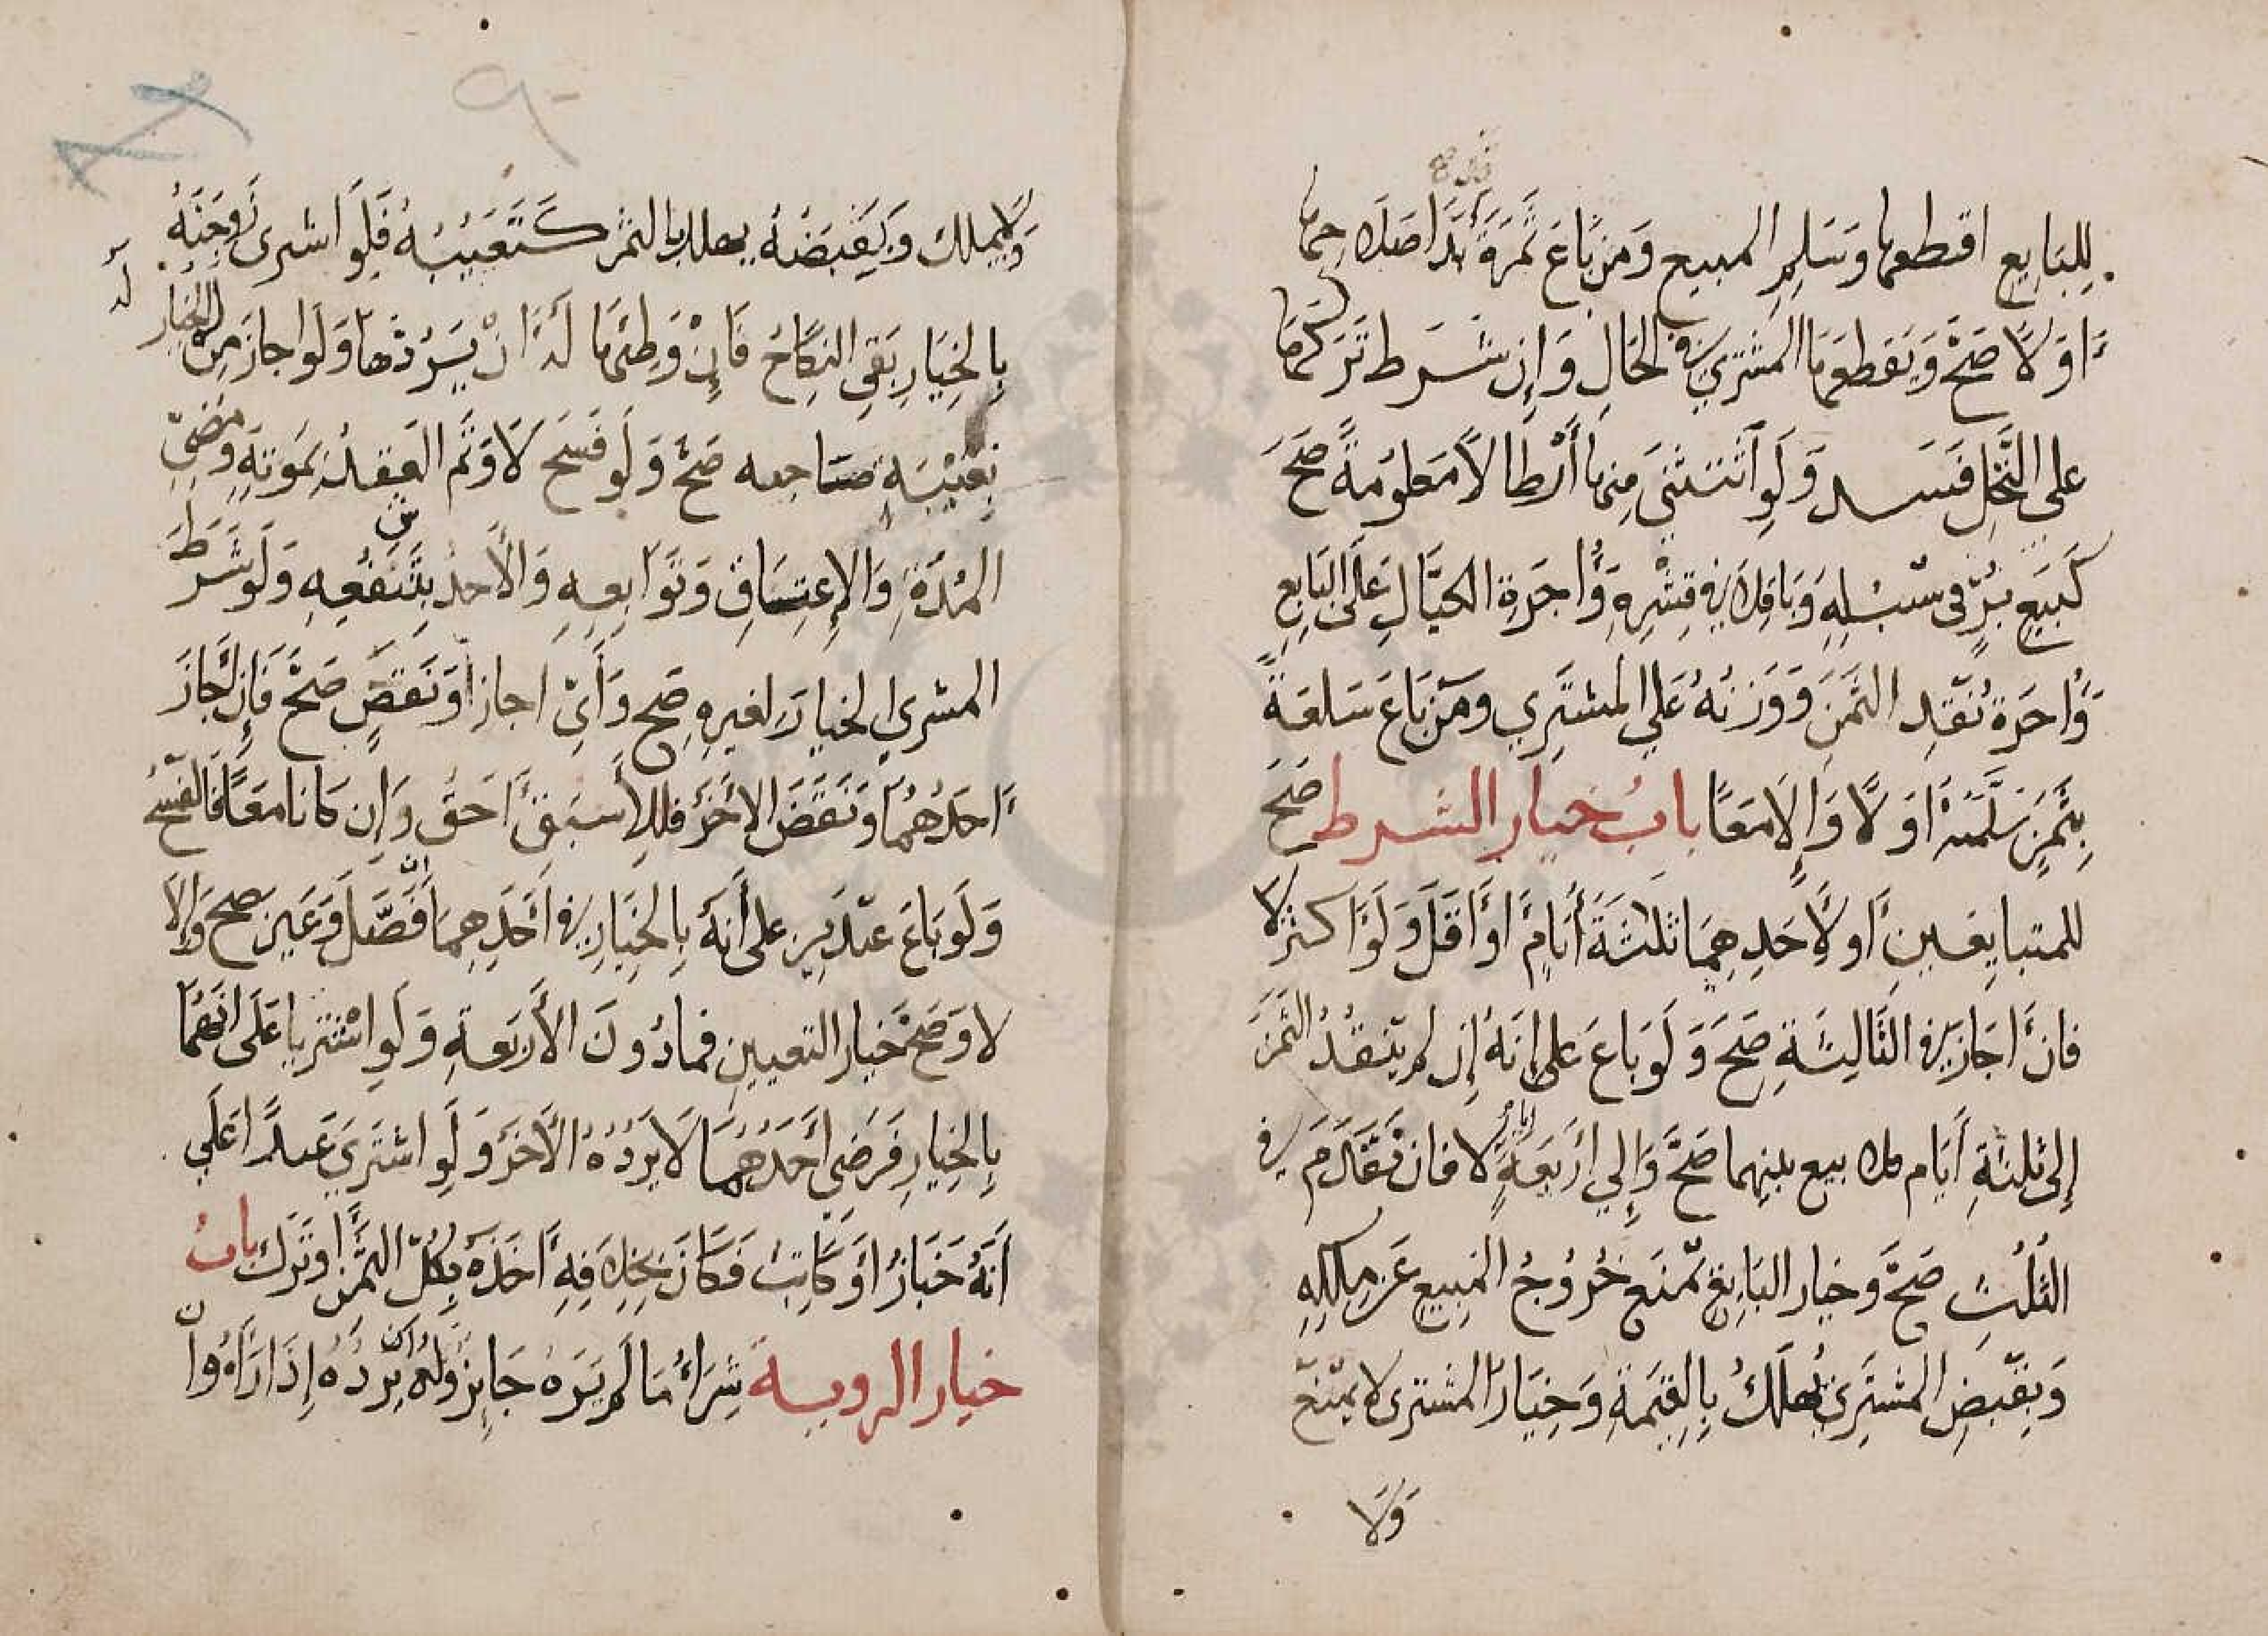 للبايع اقطعها وسلم المبيع ومن باع ثمرة بدا صلاحها
او لا صح ويقطعها المشتري في الحال وإن شرط تركها
على النخل فسد ولو استثنى منها أرطالا معلومة صح
كبيع بر في سنبله وباقلاء في قشره وأجرة الكيال على البايع
وأجرة نقد الثمن ووزنه على المشتري ومن باع سلعة
بثمن سلمه اولا وإلا معا باب خيار الشرط صح
للمتبايعين أو لأحدهما ثلثة أيام أو أقل ولو أكثر لا
فان أجاز في الثالثة صح ولو باع على إنه إن لم ينقد الثمن
إلى ثلثة أيام فلا بيع بينهما صح وإلي اربعة ايام لا فان نقد م في
الثلث صح وخيار البايع يمنع خروج المبيع عن ملكه
وبقبض المشتري يهلك بالقيمة وخيار المشتري لا يمنع
ولا
ولا يملك وبقبضه يهلك بالثمن كتعيبه فلو اشرى زوجته
بالخيار بقي النكاح فإن وطئها له ان يردها ولو اجاز من له الخيار
بغيبة صاحبه صح ولو فسخ لا وتم العقد بموته ومضي
المدة والإعتاق وتوابعه والأخذ بشفعه ولو شرط
المشري الخيار لغيره صح وأي اجاز او نقض صح فإن أجاز
أحدهما ونقض الاخر فالأسبق أحق وإن كانا معا فالفسخ
ولو باع عبدين على أنه بالخيار في أحدهما ان فصل وعين صح وإلا
لا وصح خيار التعيين فيما دون الأربعة ولو اشتريا على انهما
بالخيار فرضي أحدهما لا يرده الأخر ولو اشتري عبدا علي
أنه خباز أو كاتب فكان بخلافه أخذه بكل الثمن أو ترك باب
خيار الروية شراء ما لم يره جايز وله أن يرده إذا رآه وان